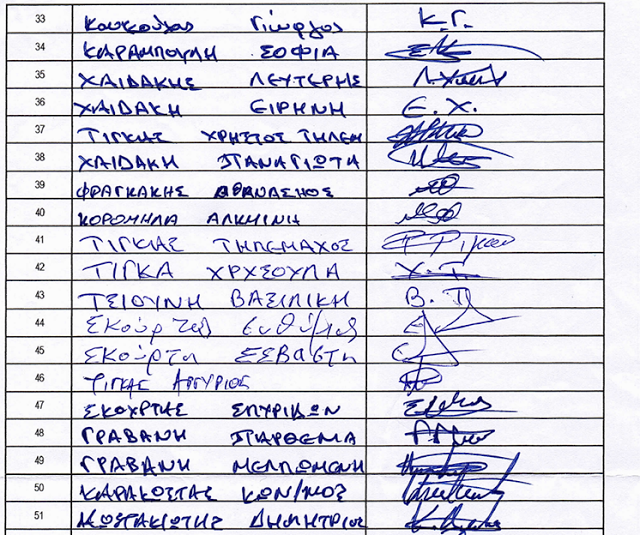 33 Κουκούλας Γιώργος Κ.Γ.
34 ΚΑΡΑΜΠΟΥΛΗ ΣΟΦΙΑ
35 ΧΑΙΔΑΚΗΣ ΛΕΥΤΕΡΗΣ
36 ΧΑΙΔΑΚΗ ΕΙΡΗΝΗ Ε.Χ.
37 ΤΙΓΚΑΣ ΧΡΗΣΤΟΣ ΤΗΛΕΜ
38 ΧΑΙΔΑΚΗ ΠΑΝΑΓΙΩΤΑ
39 ΦΡΑΓΚΑΚΗΣ ΑΘΑΝΑΣΗΟΣ
40 ΚΟΡΟΜΗΛΑ ΑΛΚΜΙΝΗ
41 ΤΙΓΚΑΣ ΤΗΛΕΜΑΧΟΣ
42 ΤΙΓΚΑ ΧΡΥΣΟΥΛΑ Χ.Τ.
43 ΤΣΙΟΥΝΗ ΒΑΣΙΛΙΚΗ Β.Τ
44 Σκούρτης Ευθύμιος
45 Σκούρτη ΣΕΒΑΣΤη
46 ΤΙΓΚΑΣ ΑΡΓΥΡΙΟΣ
47 ΣΚΟΥΡΤΗΣ ΣΠΥΡΙΔΩΝ
48 ΓΡΑΒΑΝΗ ΠΑΡΘΕΝΑ
49 ΓΡΑΒΑΝΗ ΜΕΛΠΩΜΕΝΗ
50 ΚΑΡΑΚΩΣΤΑΣ ΚΩΝ/ΝΟΣ
51 ΚΩΣΤΑΚΙΩΤΗΣ ΔΗΜΗΤΡΙΟΣ